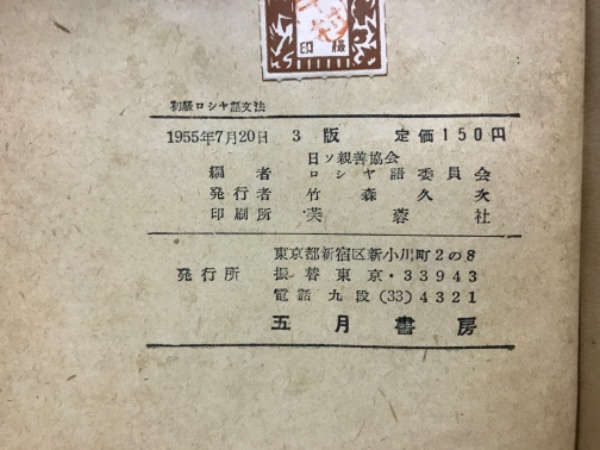 検印
初級ロシヤ語文法
1955年7月20日 3版 定価150円
日ソ親善協会
編者 ロシヤ語委員会
発行者 竹森久次
印刷所 芙蓉社
東京都新宿区新小川町2の8
発行所 振替東京・33943
電話九段(33)4321
五月書房